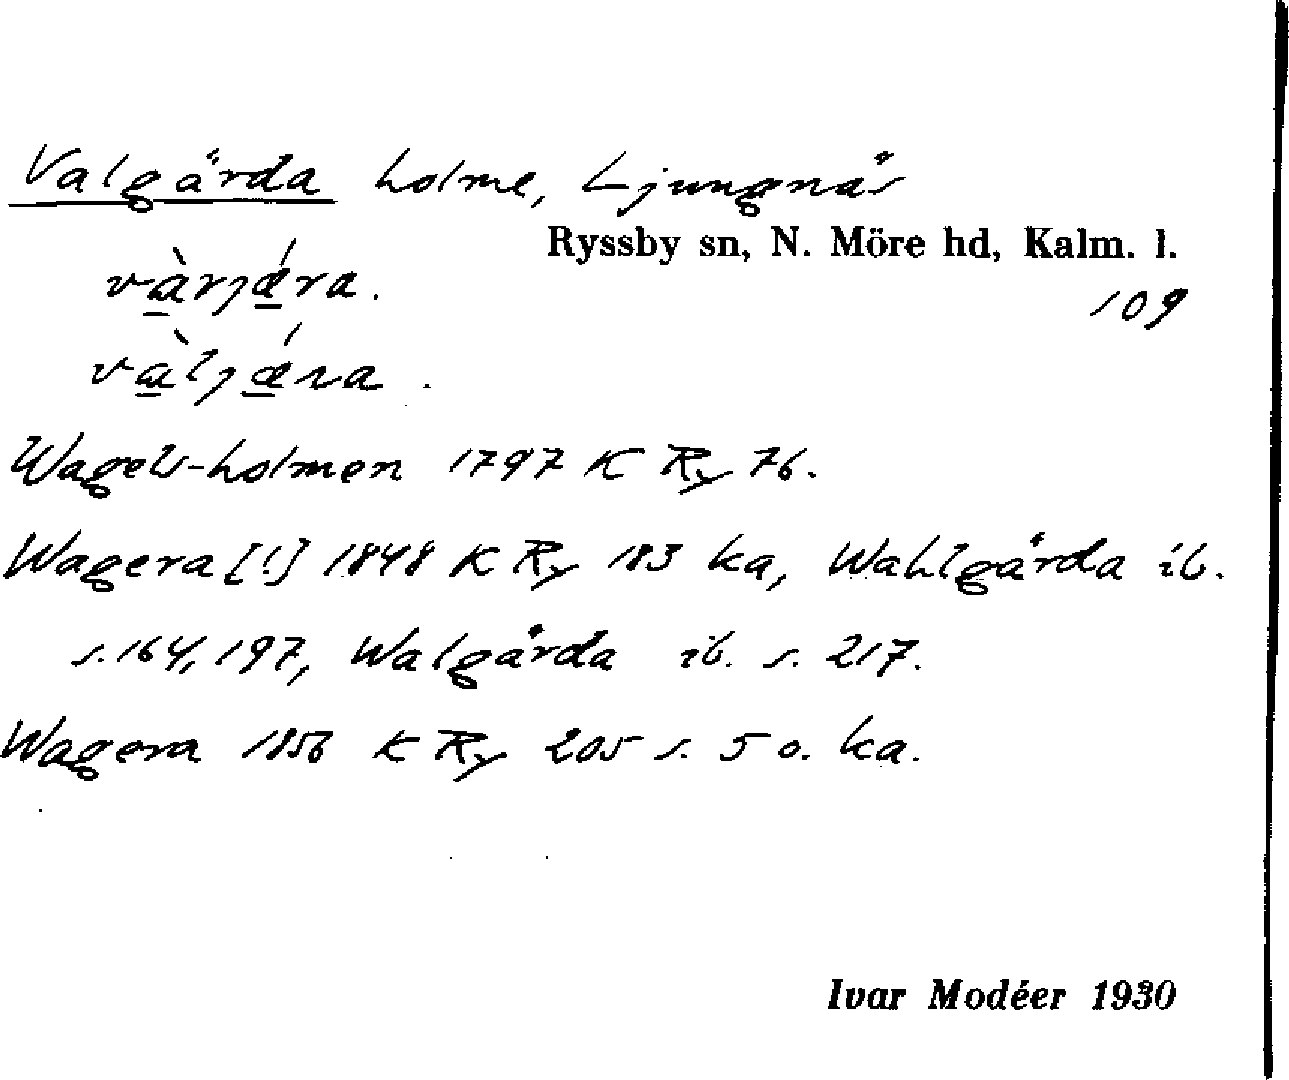 Valgärda holme, Ljungnäs
Ryssby sn, N. Möre hd, Kalm. l.
109
và̲rjǽ̲ra.
và̲ljǽ̲ra.
Wagels-holmen 1797 K Ry 76.
Wagera [!] 1848 K Ry 183 ka, Wahlgärda ib.
s. 164, 197, Walgärda ib. s. 217.
Wagera 1856 K Ry 205 s. 5 o. ka.
Ivar Modéer 1930